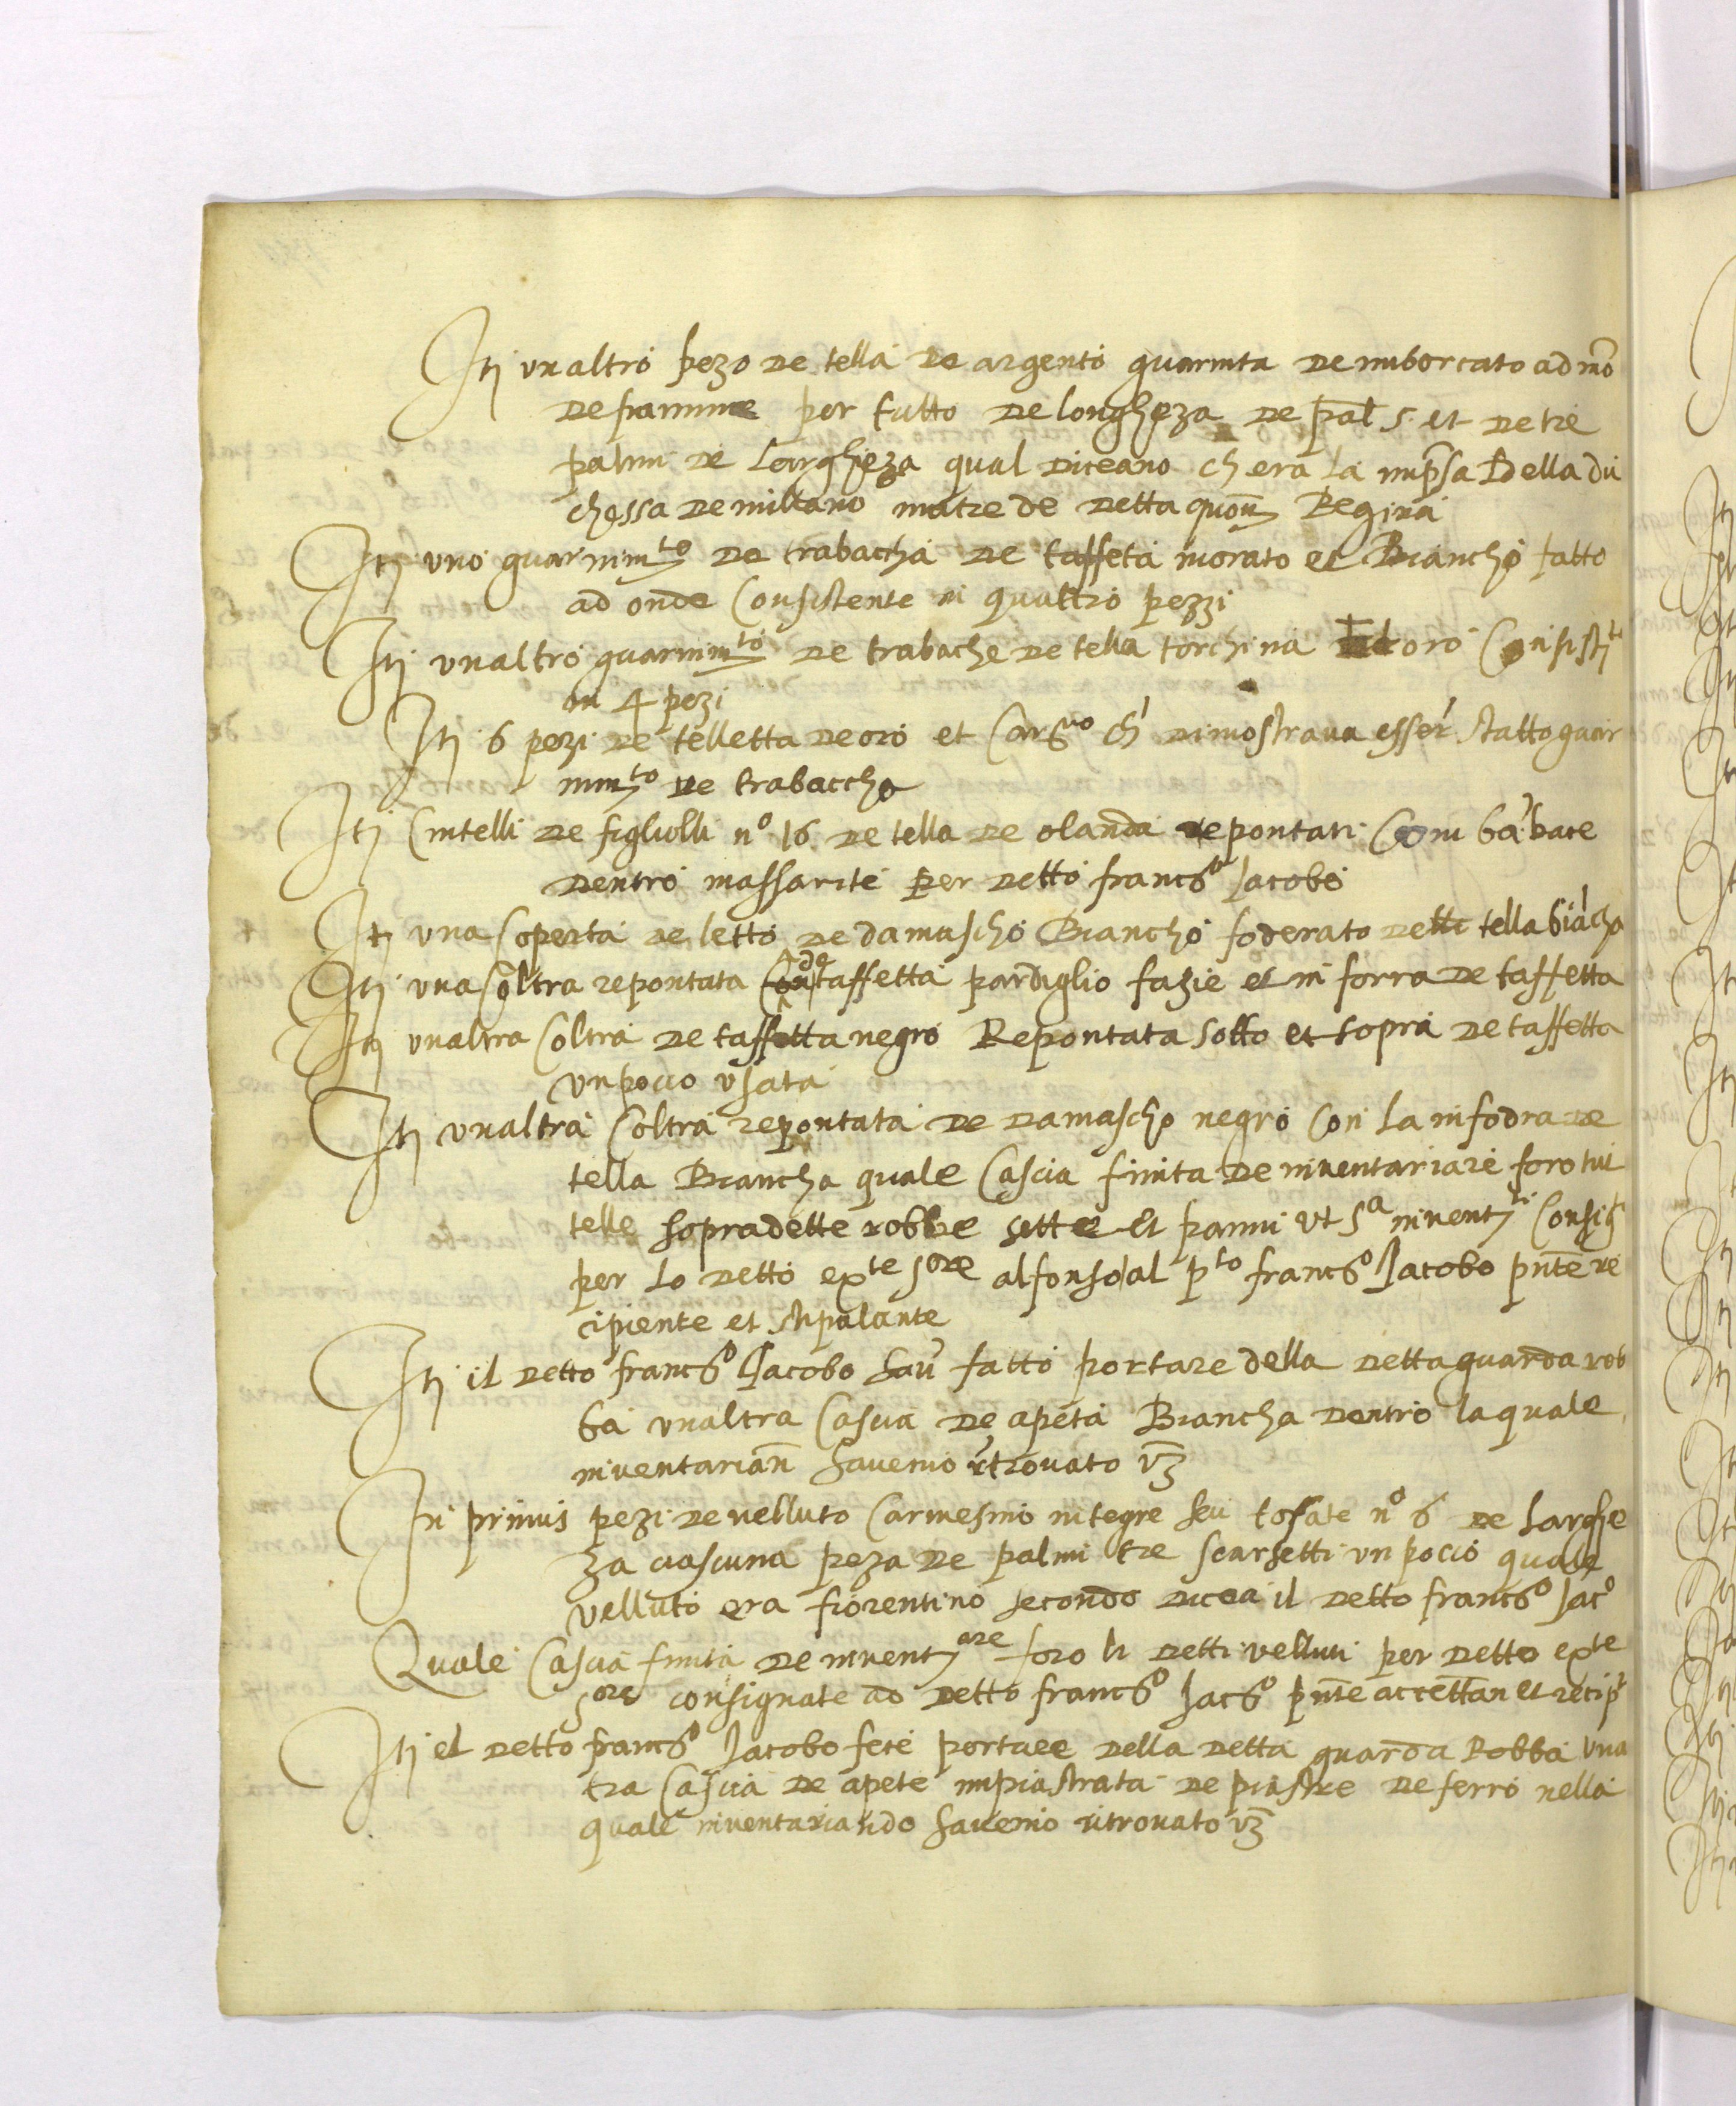 Itj unaltro pezo de tella de argento guarnita de imborcato ad mō
de framme per tutto de longheza de pal 5. et de tre
palmi de largheza qual diceano ch era la imp̄sa della du
chessa de millano matre de detta quōn Regina
Itj uno guarnimto de trabaccha de taffeta morato et Biancho fatto
ad onde Consistente in quattro pezzi
Itj unaltro guarnimto de trabache de tella torchina et oro Consistti
in 4 pezi
Itj 6 pezi de telletta de oro et Carno ch' dimostrava esser' stato guar
nimto de trabaccha
Itj Cintelli de figliolli no 16 de tella de olanda repontati Com ba'bace
dentro massarite per detto francō Jacobo
Itj una Coperta de letto de damascho Biancho foderato de tella bia'cha
Itj una Coltra repontata de taffetta pardiglio fazie et in forra de taffetta
Itj unaltra Coltra de taffetta negro Repontata sotto et sopra de taffetta
un poco usata
Itj unaltra Coltra repontata de damascho negro Con la infodra de
tella Biancha quale Cascia finita de inventariare foro tut
telle sopradette robbe sette et panni ut sa inventti Consig
per lo detto exte sore alfonso al pto francō Jacobo pn̄te re
cipiente et stipulante
Itj il detto francō Jacobo hav' fatto portare della detta guarda rob
ba unaltra Cascia de apeta Biancha dentro la quale
inventarian̄ havemo ritrovato vz
In primis pezi de velluto Carmesino integre seu tosate no 6 de larghe
za ciascuna peza de palmi tre scarsetti un poco quale
velluto era fiorentino secondo dicea il detto francō Jaco
Quale Cascia finita de inventare foro li detti velluti per detto exte
sore consignate ad detto francō Jacō pn̄te accettan̄ et recip'
Itj el detto francō Jacobo fece portare della detta guarda Robba una
tra Cascia de apete impiastrata de piastre de ferro nella
quale inventariando havemo ritrovato vz